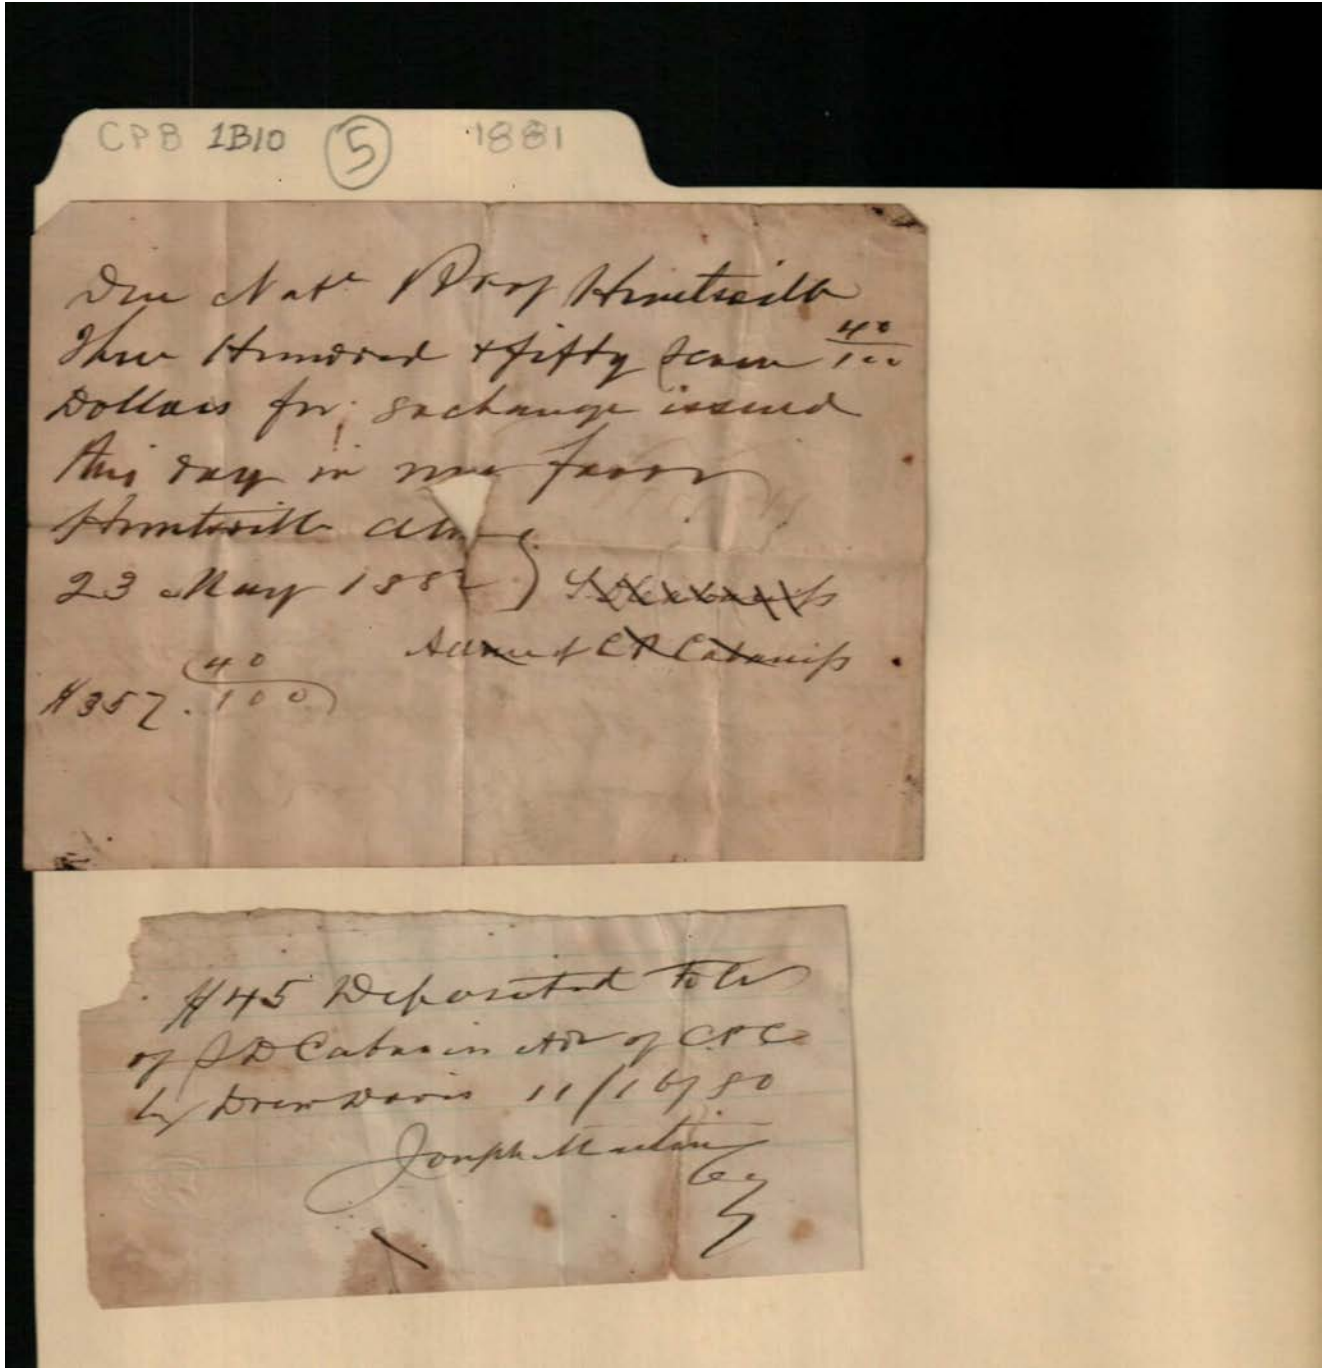 CPB 1B10 5 1881
Due Natl Bk of Huntsville
Three Hundred & fifty seven 40/100
Dollars for exchange issued
this day in my favor
Huntsville Ala
23 May 1882
Admr of CP Cabaniss
$357. 40/100
$45 Deposited to Cr
of S D Cabaniss Adr of C.P.C
by Drew Davis 11/16/80
Joseph Martin